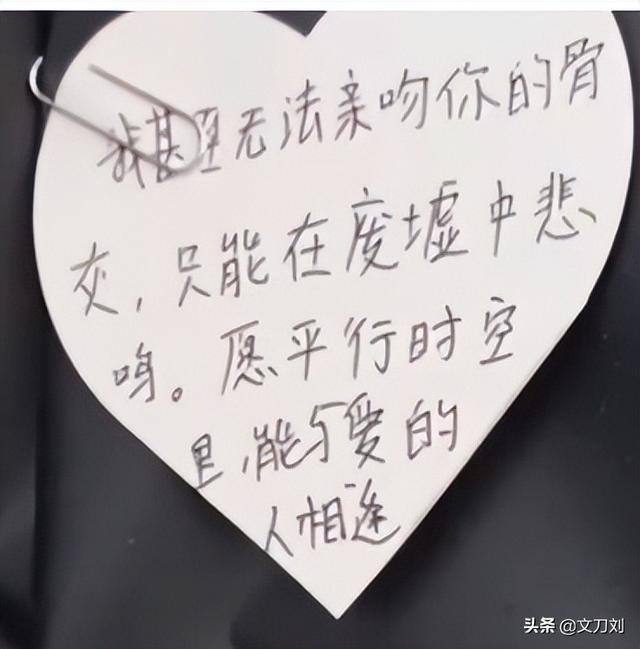 我甚至无法亲吻你的骨
灰，只能在废墟中悲
鸣。愿平行时空
里，能与爱的
人相逢
头条 @文刀刘